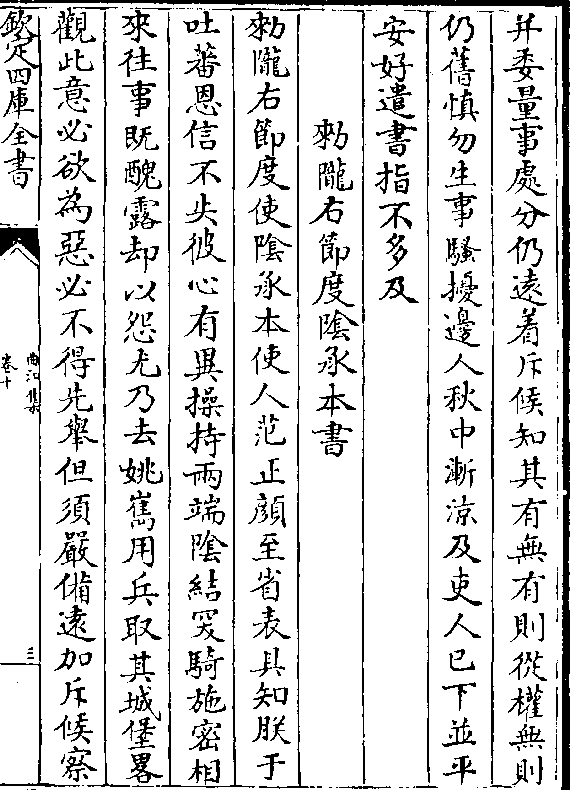 并委量事處分仍遠着斥候知其有無有則從權無則
仍舊慎勿生事騷擾邊人秋中漸涼及吏人已下並平
安好遣書指不多及
勑隴右節度陰承本書
勑隴右節度使陰承本使人范正顔至省表具知朕于
吐蕃恩信不失彼心有異操持兩端陰結突騎施密相
來往事既醜露却以怨尤乃去姚嶲用兵取其城堡畧
觀此意必欲為惡必不得先舉但須嚴備遠加斥候察
欽定四庫全書
曲江集
卷十
三